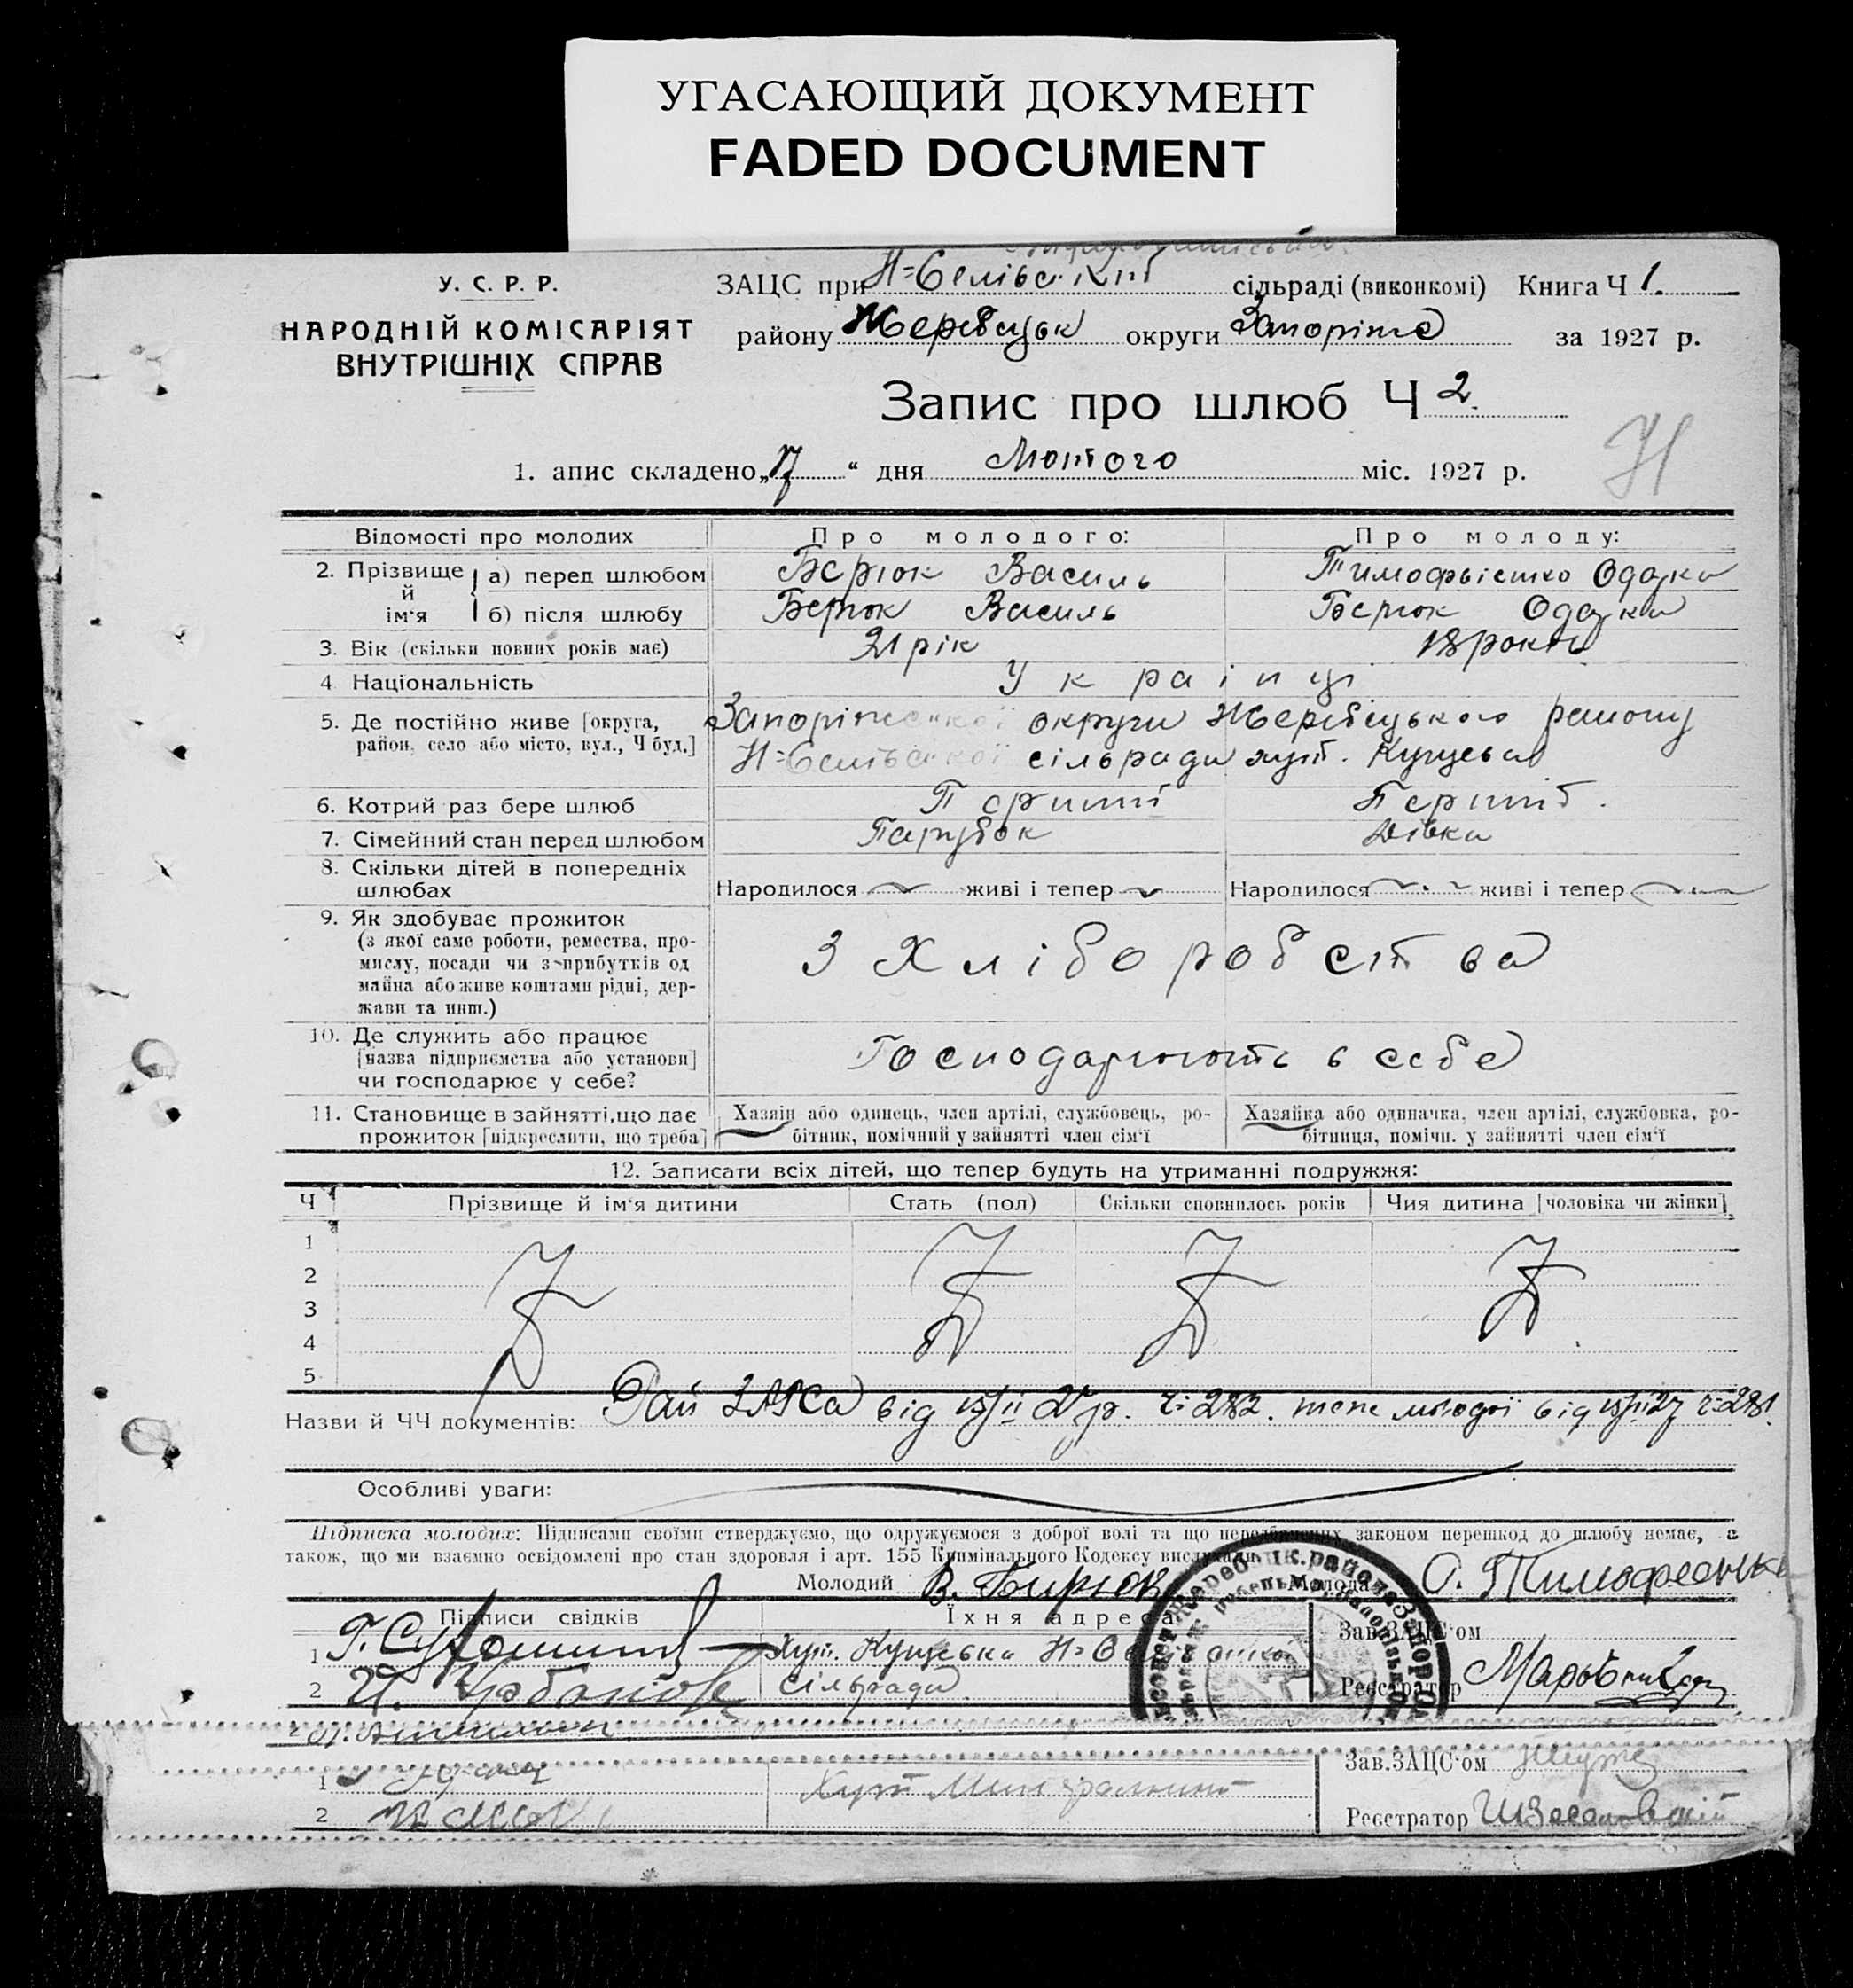 УГАСАЮЩИЙ ДОКУМЕНТ
FADED DOCUMENT
У. С. Р. Р.
НАРОДНІЙ КОМІСАРІЯТ
ВНУТРІШНІХ СПРАВ
ЗАЦС при сільраді (виконкомі) Книга Ч 1.
району Жеребецьк округи Запоріж за 1927 р.
Запис про шлюб Ч 2.
1. апис складено „17“ дня Лютого міс. 1927 р.
Відомості про молодих Про молодого: Про молоду:
2. Прізвище й ім'я а) перед шлюбом Бєрюк Василь Одарка
б) після шлюбу Бєрюк Василь Бєрюк Одарка
3. Вік (скільки повних років має) 21 рік 18 роки
4 Національність Українці
5. Де постійно живе [округа, Запоріжської округи Жеребецького району
район, село або місто, вул., Ч буд.] сільради хут.
6. Котрий раз бере шлюб Перший Перший.
7. Сімейний стан перед шлюбом Парубок Дівка
8. Скільки дітей в попередніх
шлюбах Народилося живі і тепер Народилося живі і тепер
9. Як здобуває прожиток
(з якої саме роботи, ремества, про-
мислу, посади чи з прибутків од
майна або живе коштами рідні, дер-
жави та инш.)
З Хліборобства
10. Де служить або працює
[назва підприємства або установи]
чи господарює у себе?
Господарюють в себе
11. Становище в зайнятті, що дає Хазяїн або одинець, член артілі, службовець, ро- Хазяйка або одиначка, член артілі, службовка, ро-
прожиток [підкреслити, що треба] бітник, помічний у зайнятті член сім'ї бітниця, помічн. у зайнятті член сім'ї
12. Записати всіх дітей, що тепер будуть на утриманні подружжя:
Ч Прізвище й ім'я дитини Стать (пол) Скільки сповнилось років Чия дитина [чоловіка чи жінки]
1
2
3
4
5
Назви й ЧЧ документів: Рай ЗАГСа від 15/II 27 р. ч: 282. теж молодої від 15/II 27 ч: 281.
Особливі уваги:
Підписка молодих: Підписами своїми стверджуємо, що одружуємося з доброї волі та що передбачених законом перешкод до шлюбу немає, а
також, що ми взаємно освідомлені про стан здоровля і арт. 155 Кримінального Кодексу вислухали.
Молодий В. Бирюк Молода О.
Підписи свідків Їхня адреса Зав.ЗАЦС'ом
1 Г. Хут.
2 Урбанов Сільради Реєстратор
1 Хут Зав.ЗАЦС'ом
2 Реєстратор